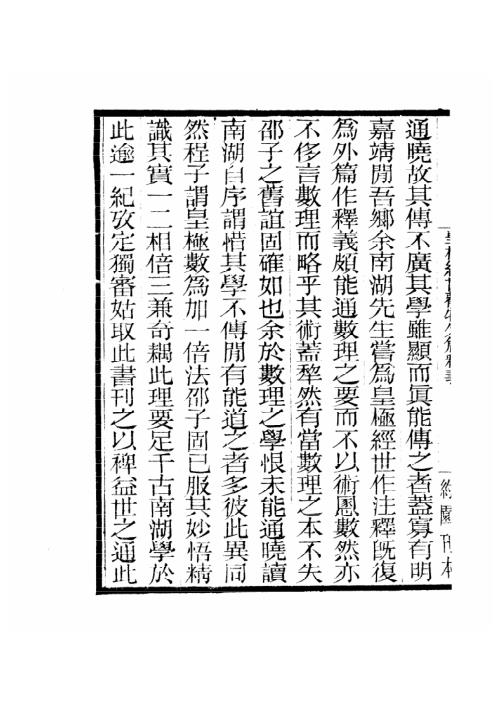 通曉故其傳不廣其學雖顯而眞能傳之者蓋寡有明
嘉靖閒吾鄉余南湖先生嘗爲皇極經世作注釋旣復
爲外篇作釋義頗能通數理之要而不以術慁數然亦
不侈言數理而略乎其術蓋犂然有當數理之本不失
邵子之舊誼固確如也余於數理之學恨未能通曉讀
南湖自序謂惜其學不傳閒有能道之者多彼此異同
然程子謂皇極數爲加一倍法邵子固已服其妙悟精
識其實一二相倍三兼奇耦此理要足千古南湖學於
此逾一紀攷定獨審姑取此書刊之以裨益世之通此
約園刊本